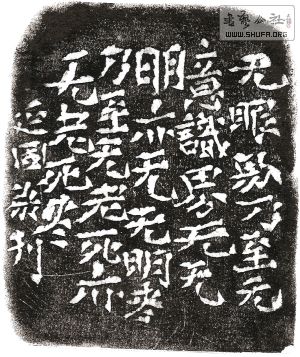 无眼界乃至无
意識界无无
明亦无无明尽
乃至无老死亦
无老死尽
近園米刊
WWW.SHUFA.ORG